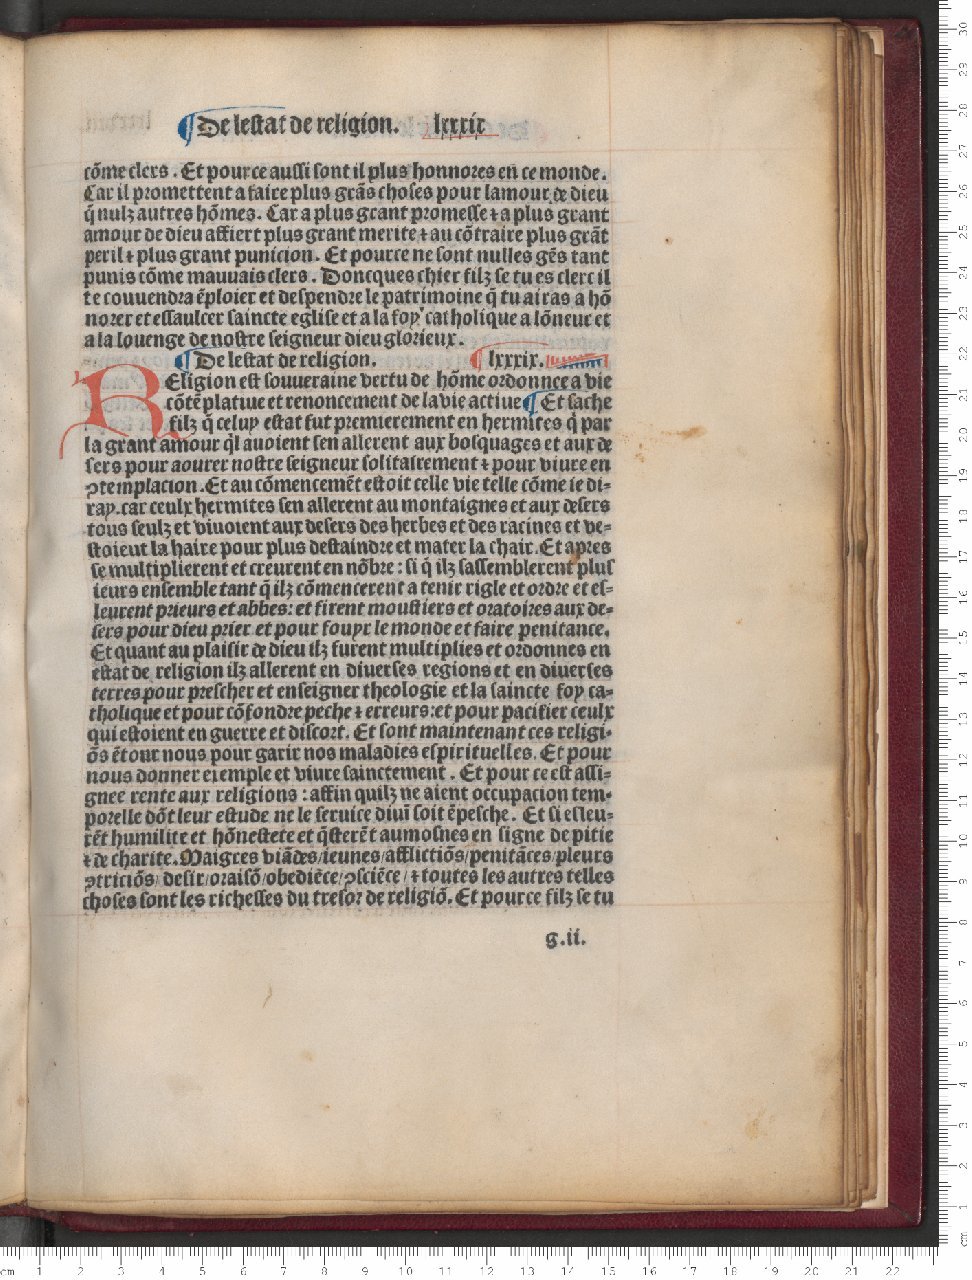 ¶ De lestat de religion. lxxxix
cõme clers . Et pource aussi sont il plus honnores en ce monde .
Car il promettent a faire plus grãs choses pour lamour de dieu
q̃ nulz autres hõmes . Car a plus grant promesse ⁊ a plus grant
amour de dieu affiert plus grant merite ⁊ au cõtraire plus grãt
peril ⁊ plus grant punicion . Et pource ne sont nulles gẽs tant
punis cõme mauuais clers . Doncques chier filz se tu es clerc il
te conuendra ẽploier et despendre le patrimoine q̃ tu airas a hõ
norer et essaulcer saincte eglise et a la foy catholique a lõneur et
a la louenge de nostre seigneur dieu glorieux .
¶ De lestat de religion. ¶ lxxxix.
REligion est souueraine vertu de hõme ordonnee a vie
cõtẽplatiue et renoncement de la vie actiue ¶ Et sache
filz q̃ celuy estat fut premierement en hermites q̃ par
la grant amour q̃l auoient sen allerent aux bosquages et aux de
sers pour aourer nostre seigneur solitairement ⁊ pour viure en
ꝯtemplacion . Et au cõmencemẽt estoit celle vie telle cõme ie di-
ray. car ceulx hermites sen allerent au montaignes et aux desers
tous seulz et viuoient aux desers des herbes et des racines et ve-
stoient la haire pour plus destaindre et mater la chair. Et apres
se multiplierent et creurent en nõbre : si q̃ ilz sassemblerent plus
ieurs ensemble tant q̃ ilz cõmencerent a tenir rigle et ordre et es-
leurent prieurs et abbes: et firent moustiers et oratoires aux de-
sers pour dieu prier et pour fouyr le monde et faire penitance.
Et quant au plaisir de dieu ilz furent multiplies et ordonnes en
estat de religion ilz allerent en diuerses regions et en diuerses
terres pour prescher et enseigner theologie et la saincte foy ca-
tholique et pour cõfondre peche ⁊ erreurs: et pour pacifier ceulx
qui estoient en guerre et discort. Et sont maintenant ces religi-
õs ẽtour nous pour garir nos maladies espirituelles. Et pour
nous donner exemple et viure sainctement . Et pour ce est assi-
gnee rente aux religions : affin quilz ne aient occupacion tem-
porelle dõt leur estude ne le seruice diuĩ soit ẽpesche . Et si esleu-
rẽt humilite et hõnestete et q̃sterẽt aumosnes en signe de pitie
⁊ de charite. Maigres viãdes/ieunes/afflictiõs/penitãces/pleurs
ꝯtriciõs/ desir/oraisõ/obediẽce/ꝯsciẽce/ ⁊ toutes les autres telles
choses sont les richesses du tresor de religiõ. Et pource filz se tu
g.ii.